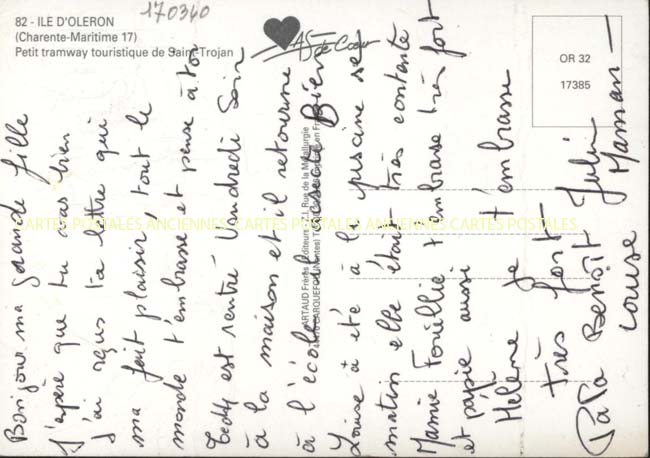 170340
82 - ILE D'OLERON
(Charente-Maritime 17)
Petit tramway touristique de Saint-Trojan
AS de Cœur
OR 32
17385
ARTAUD Frères Éditeurs - Z.I., Rue de la Métallurgie
44470 CARQUEFOU (Nantes)
CARTES POSTALES ANCIENNES CARTES POSTALES ANCIENNES CARTES POSTALES
Bonjour ma grande fille
J'espère que tu vas bien
J'ai reçus ta lettre qui
ma fait plaisir, tout le
monde t'embrasse et pense à toi
Teddy est rentré Vendredi Soir
à la maison et il retourne
à l'école
Louise à été à la piscine se
matin elle était très contente
Mamie t'embrasse très fort
et papie aussi
Hélène Je t'embrasse
très fort
PaPa Benoît Julien
Louise Maman